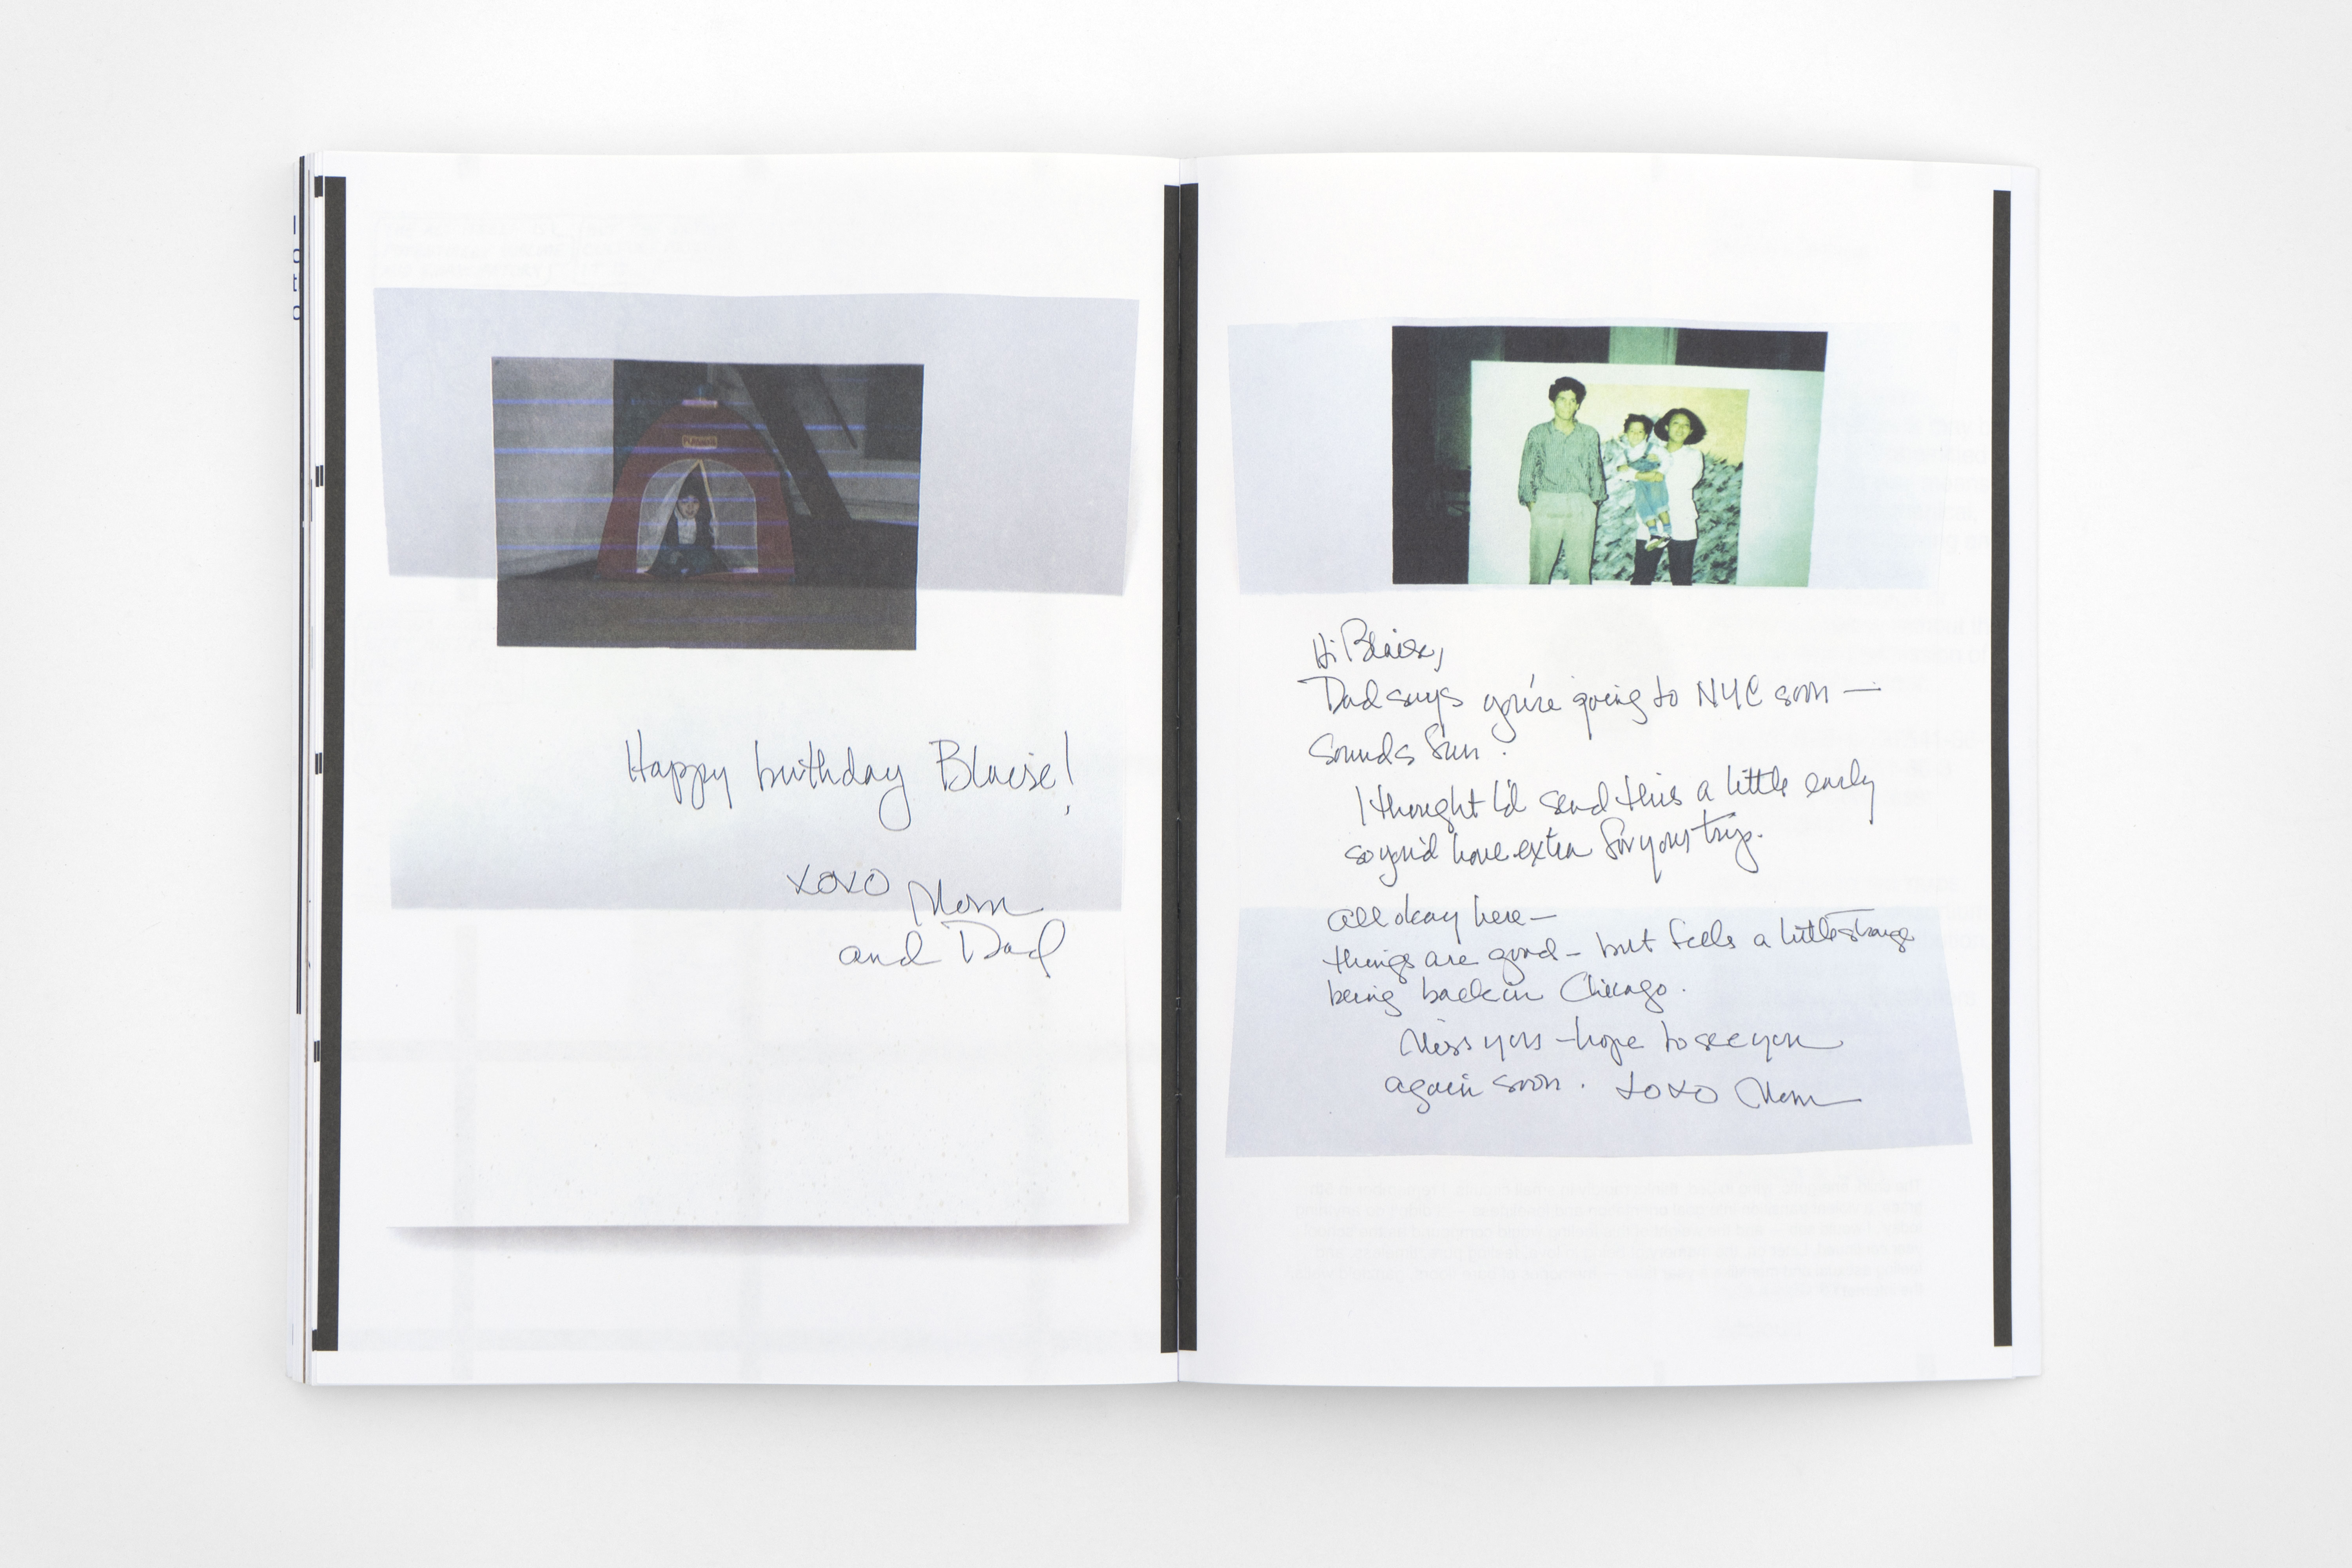 loto
PLAYSKOOL
Happy birthday Blaise!
xoxo Mom
and Dad
Hi Blaise,
Dad says you're going to NYC soon —
Sounds fun.
I thought I'd send this a little early
so you'd have extra for your trip.
All okay here —
things are good — but feels a little strange
being back in Chicago.
Miss you — hope to see you
again soon. xoxo Mom